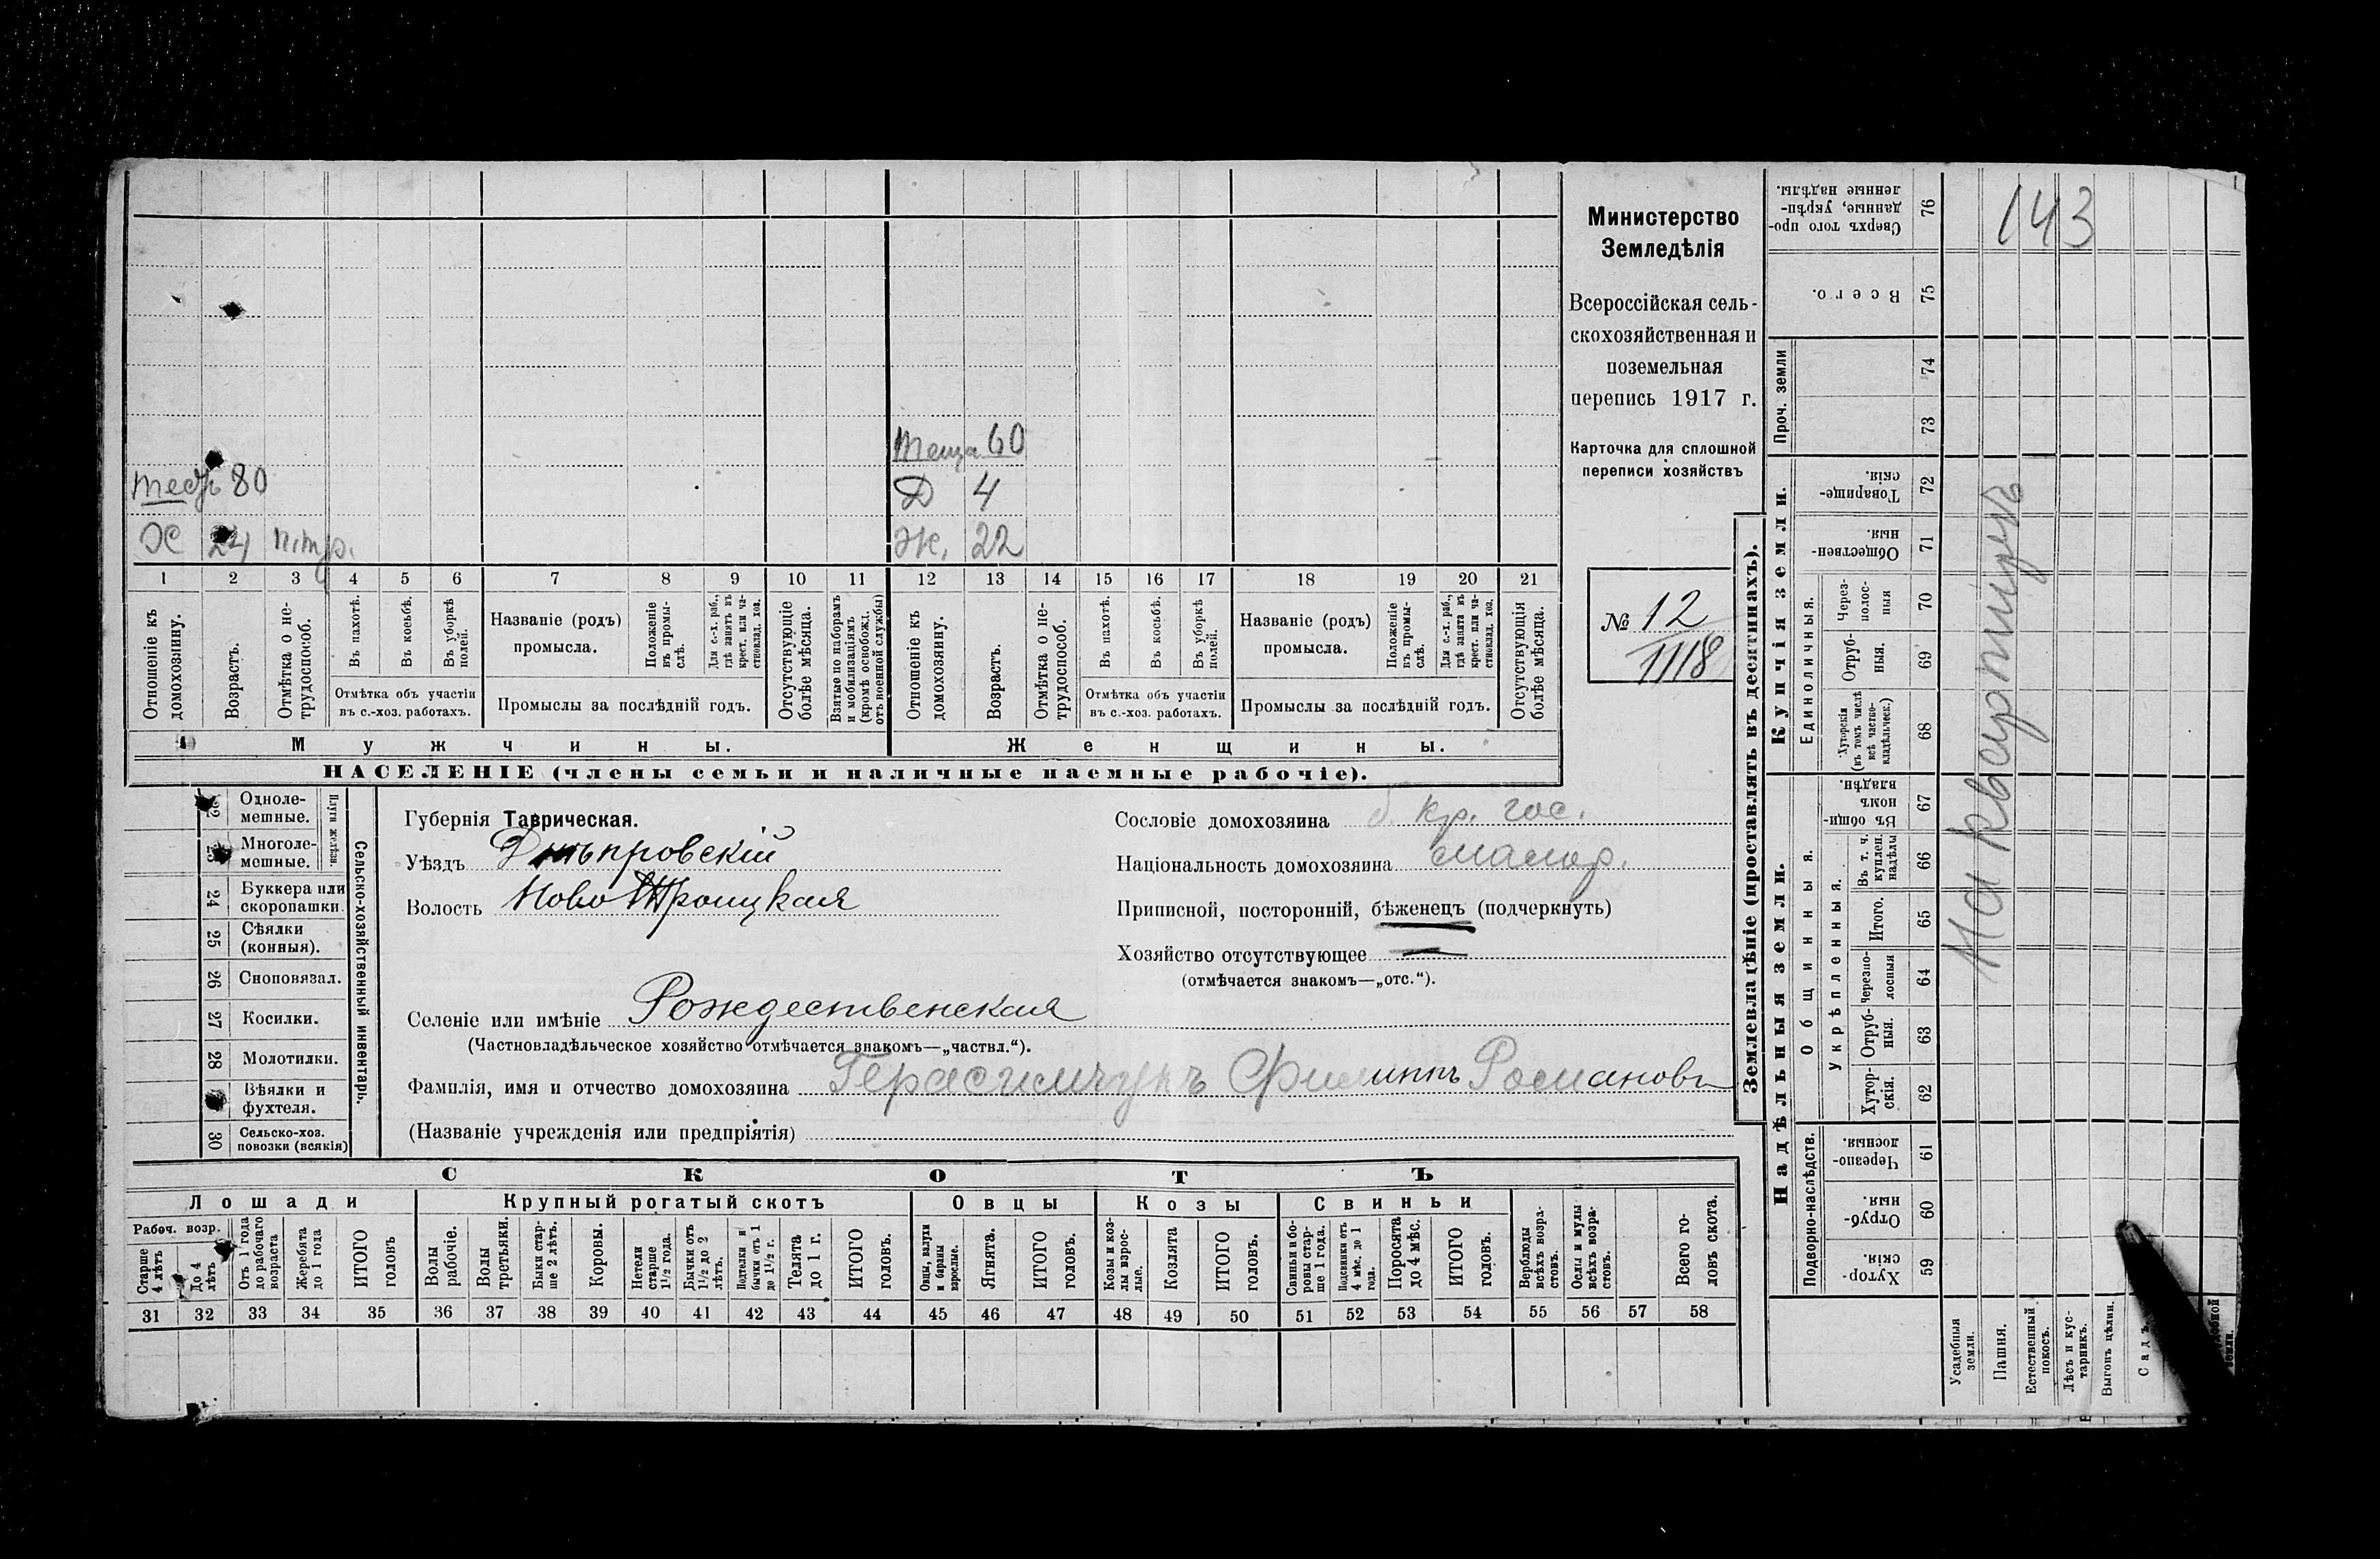 Министерство
Земледѣлія
Всероссійская сель-
скохозяйственная и
поземельная
перепись 1917 г.
Карточка для сплошной
переписи хозяйствъ
№ 12
1118
Теща 60
Д 4
Ж. 22
80
Х 24 н.тр.
1 2 3 4 5 6 7 8 9 10 11 12 13 14 15 16 17 18 19 20 21
Отношеніе къ домохозяину.
Возрастъ.
Отмѣтка о не-трудоспособ.
Въ пахотѣ.
Въ косьбѣ.
Въ уборкѣ полей.
Отмѣтка объ участіи
въ с.-хоз. работахъ.
Названіе (родъ)
промысла.
Положеніе въ промы-слѣ.
Для с.-х. раб., гдѣ занятъ въ крест. или ча-стновлад. хоз.
Промыслы за послѣдній годъ.
Отсутствующіе болѣе мѣсяца.
Взятые по наборамъ и мобилизаціямъ (кромѣ освобожд. отъ военной службы)
Отношеніе къ домохозяину.
Возрастъ.
Отмѣтка о не-трудоспособ.
Въ пахотѣ.
Въ косьбѣ.
Въ уборкѣ полей.
Отмѣтка объ участіи
въ с.-хоз. работахъ.
Названіе (родъ)
промысла.
Положеніе въ промы-слѣ.
Для с.-х. раб., гдѣ занята въ крест. или ча-стновлад. хоз.
Промыслы за послѣдній годъ.
Отсутствующія болѣе мѣсяца.
Мужчины.
Женщины.
НАСЕЛЕНІЕ (члены семьи и наличные наемные рабочіе).
Сельско-хозяйственный инвентарь.
Плуги желѣзн.
22 Одноле-мешные.
23 Многоле-мешные.
24 Буккера или скоропашки.
25 Сѣялки (конныя).
26 Сноповязал.
27 Косилки.
28 Молотилки.
Вѣялки и фухтеля.
30 Сельско-хоз. повозки (всякія)
Губернія Таврическая.
Уѣздъ Днѣпровскій
Волость Ново Троицкая
Сословіе домохозяина б. кр. гос.
Національность домохозяина малор.
Приписной, посторонній, бѣженецъ (подчеркнуть)
Хозяйство отсутствующее —
(отмѣчается знакомъ—„отс.“).
Селеніе или имѣніе Рождественская
(Частновладѣльческое хозяйство отмѣчается знакомъ—„частвл.“).
Фамилія, имя и отчество домохозяина Герасимчукъ Филиппъ Романовъ
(Названіе учрежденія или предпріятія)
СКОТЪ
Лошади
Крупный рогатый скотъ
Овцы
Козы
Свиньи
Рабоч. возр.
Старше 4 лѣтъ
До 4 лѣтъ
Отъ 1 года до рабочаго возраста
Жеребята до 1 года
ИТОГО головъ
Волы рабочіе.
Волы третьяки.
Быки стар-ше 2 лѣтъ.
Коровы.
Нетели старше 1½ года.
Бычки отъ 1½ до 2 лѣтъ.
Подтелки и бычки отъ 1 до 1½ г.
Телята до 1 г.
ИТОГО головъ.
Овцы, валухи и бараны взрослые.
Ягнята.
ИТОГО головъ.
Козы и коз-лы взрос-лые.
Козлята
ИТОГО головъ.
Свиньи и бо-ровы стар-ше 1 года.
Подсвинки отъ 4 мѣс. до 1 года.
Поросята до 4 мѣс.
ИТОГО головъ.
Верблюды всѣхъ возра-стовъ.
Ослы и мулы всѣхъ возра-стовъ.
Всего го-ловъ скота.
31 32 33 34 35 36 37 38 39 40 41 42 43 44 45 46 47 48 49 50 51 52 53 54 55 56 57 58
Землевладѣніе (проставлять въ десятинахъ).
Надѣльныя земли.
Купчія земли.
Проч. земли
Подворно-наслѣдств.
Общинныя.
Укрѣпленныя.
Единоличныя.
Хутор-скія. 59
Отруб-ныя. 60
Черезпо-лосныя. 61
Хутор-скія. 62
Отруб-ныя. 63
Черезпо-лосныя 64
Итого. 65
Въ т. ч. куплен. надѣлы 66
Въ общин-номъ владѣн. 67
Хуторскія (въ томъ числѣ всѣ частно-владѣльческ.) 68
Отруб-ныя. 69
Через-полос-ныя 70
Обществен-ныя. 71
Товарище-скія. 72
73
74
Всего. 75
Сверхъ того про-данные, укрѣп-ленные надѣлы. 76
Усадебныя земли.
Пашня.
Естественный покосъ.
Лѣсъ и кус-тарникъ.
Выгонъ цѣлин.
Садъ
143
На квартирѣ